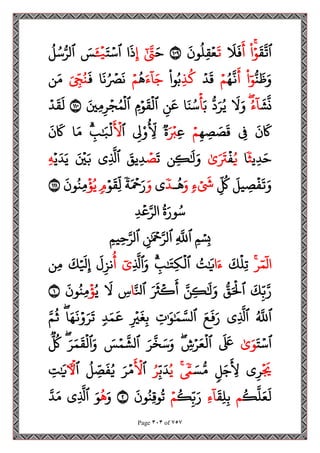 ٱتَّقَوْا۟ۖ أَفَلَا تَعْقِلُونَ ١٠٩ حَتَّىٰٓ إِذَا ٱسْتَيْـَٔسَ ٱلرُّسُلُ
وَظَنُّوٓا۟ أَنَّهُمْ قَدْ كُذِبُوا۟ جَآءَهُمْ نَصْرُنَا فَنُۨجِى مَن
نَّشَآءُۖ وَلَا يُرَدُّ بَأْسُنَا عَنِ ٱلْقَوْمِ ٱلْمُجْرِمِينَ ١١٠ لَقَدْ
كَانَ فِى قَصَصِهِمْ عِبْرَةٌ لِّأُو۟لِى ٱلْأَلْبَٰبِۗ مَا كَانَ
حَدِيثًا يُفْتَرَىٰ وَلَٰكِن تَصْدِيقَ ٱلَّذِى بَيْنَ يَدَيْهِ
وَتَفْصِيلَ كُلِّ شَىْءٍ وَهُدًى وَرَحْمَةً لِّقَوْمٍ يُؤْمِنُونَ ١١١
سُورَةُ الرَّعْدِ
بِسْمِ ٱللَّهِ ٱلرَّحْمَٰنِ ٱلرَّحِيمِ
الٓمٓرۚ تِلْكَ ءَايَٰتُ ٱلْكِتَٰبِۗ وَٱلَّذِىٓ أُنزِلَ إِلَيْكَ مِن
رَّبِّكَ ٱلْحَقُّ وَلَٰكِنَّ أَكْثَرَ ٱلنَّاسِ لَا يُؤْمِنُونَ ١
ٱللَّهُ ٱلَّذِى رَفَعَ ٱلسَّمَٰوَٰتِ بِغَيْرِ عَمَدٍ تَرَوْنَهَاۖ ثُمَّ
ٱسْتَوَىٰ عَلَى ٱلْعَرْشِۖ وَسَخَّرَ ٱلشَّمْسَ وَٱلْقَمَرَۖ كُلٌّ
يَجْرِى لِأَجَلٍ مُّسَمًّىۚ يُدَبِّرُ ٱلْأَمْرَ يُفَصِّلُ ٱلْـَٔايَٰتِ
لَعَلَّكُم بِلِقَآءِ رَبِّكُمْ تُوقِنُونَ ٢ وَهُوَ ٱلَّذِى مَدَّ
Page ٣٠٣ of ٧٥٧